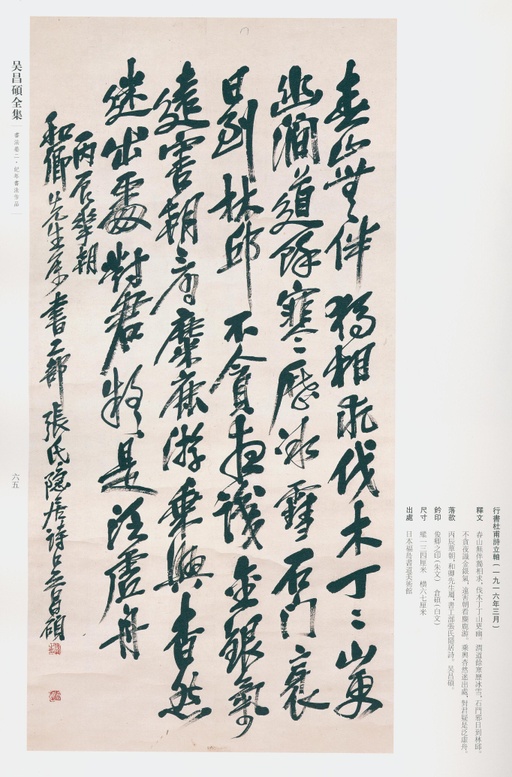 行書杜甫詩立軸（一九一六年三月）
釋文　春山無伴獨相求，伐木丁丁山更幽。澗道餘寒歷冰雪，石門邪日到林邱。
不貪夜識金銀氣，遠害朝看麋鹿游。乘興杳然迷出處，對君疑是泛虛舟。
落款　丙辰華朝，和卿先生屬，書工部張氏隱居詩。吳昌碩。
鈐印　俊卿之印（朱文）　倉碩（白文）
尺寸　縱一三四厘米　橫六七厘米
出處　日本福島書道美術館
春山無伴獨相求伐木丁〻山更
幽澗道餘寒歷冰雪石門衺
日到林邱不貪夜識金銀氣
遠害朝看麋鹿游乘興杳然
迷出處對君疑是泛虛舟
丙辰華朝
和卿先生屬書工部張氏隱居詩吳昌碩
吴昌碩全集
書法卷二·紀年書法作品
六五